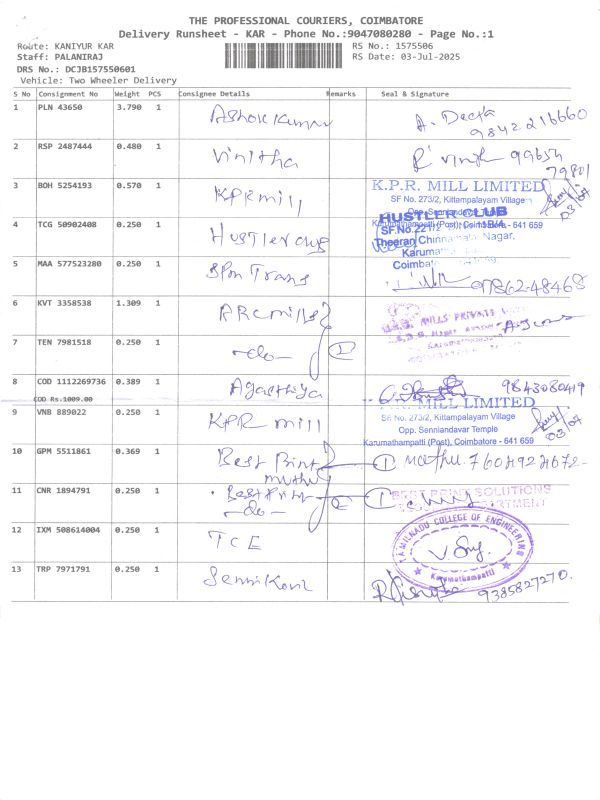 THE PROFESSIONAL COURIERS, COIMBATORE
Delivery Runsheet - KAR - Phone No.:9047080280 - Page No.:1
Route: KANIYUR KAR
RS No.: 1575506
Staff: PALANIRAJ
RS Date: 03-Jul-2025
DRS No.: DCJB157550601
Vehicle: Two Wheeler Delivery
S No Consignment No Weight PCS Consignee Details Remarks Seal & Signature
1 PLN 43650 3.790 1 Ashok Kumar A. Deepa
9842216660
2 RSP 2487444 0.480 1 Vinitha 99654
79801
3 BOH 5254193 0.570 1 KPR mill K.P.R. MILL LIMITED
SF No. 273/2, Kittampalayam Village
Opp. Senniandavar Temple
Karumathampatti (Post), Coimbatore - 641 659
03/07
4 TCG 50902408 0.250 1 Hustler club HUSTLER CLUB
SF.No. 221/2
Theeran Chinnamalai Nagar,
Coimbatore
5 MAA 577523280 0.250 1 Spm Trans 97862-48468
6 KVT 3358538 1.309 1 ARC mills MILLS PRIVATE
7 TEN 7981518 0.250 1 -do- 2
8 COD 1112269736 0.389 1 Agasthiya 9843080419
COD Rs.1009.00
9 VNB 889022 0.250 1 KPR mill K.P.R. MILL LIMITED
SF No. 273/2, Kittampalayam Village
Opp. Senniandavar Temple
Karumathampatti (Post), Coimbatore - 641 659
03/07
10 GPM 5511861 0.369 1 Best Print 1 Muthu. 7604924672
muthu
11 CNR 1894791 0.250 1 Best Print 2 1 BEST PRINT SOLUTIONS
-do-
12 IXM 508614004 0.250 1 TCE TAMILNADU COLLEGE OF ENGINEERING
Karumathampatti
13 TRP 7971791 0.250 1 9385827270.